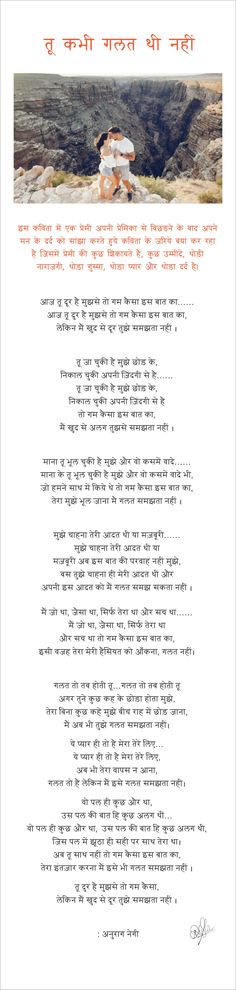 तू कभी गलत थी नहीं
इस कविता में एक प्रेमी अपनी प्रेमिका से बिछडने के बाद अपने
मन के दर्द को सांझा करते हुये कविता के जरिये बयां कर रहा
है जिसमें प्रेमी की कुछ शिकायते है, कुछ उम्मीदे, थोडी
नाराजगी, थोडा गुस्सा, थोडा प्यार और थोडा दर्द है।
आज तू दूर है मुझसे तो गम कैसा इस बात का......
आज तू दूर है मुझसे तो गम कैसा इस बात का,
लेकिन मैं खुद से दूर तुझे समझता नहीं ।
तू जा चुकी है मुझे छोड के,
निकाल चुकी अपनी जिंदगी से है......
तू जा चुकी है मुझे छोड के,
निकाल चुकी अपनी जिंदगी से है
तो गम कैसा इस बात का,
मैं खुद से अलग तुझसे समझता नहीं ।
माना तू भूल चुकी है मुझे और वो कसमें वादे......
माना के तू भूल चुकी है मुझे और वो कसमें वादे भी,
जो हमने साथ में किये थे तो गम कैसा इस बात का,
तेरा मुझे भूल जाना मैं गलत समझता नहीं ।
मुझे चाहना तेरी आदत थी या मजबूरी......
मुझे चाहना तेरी आदत थी या
मजबूरी अब इस बात की परवाह नहीं मुझे,
बस तुझे चाहना ही मेरी आदत थी और
अपनी इस आदत को मैं गलत समझ सकता नहीं ।
मैं जो था, जैसा था, सिर्फ तेरा था और सच था......
मैं जो था, जैसा था, सिर्फ तेरा था
और सच था तो गम कैसा इस बात का,
इसी वजह तेरा मेरी हैसियत को आँकना, गलत नहीं ।
गलत तो तब होती तू...गलत तो तब होती तू
अगर तुने कुछ कह के छोडा होता मुझे,
तेरा बिना कुछ कहे मुझे बीच राह में छोड जाना,
मैं अब भी तुझे गलत समझता नहीं।
ये प्यार ही तो है मेरा तेरे लिए...
ये प्यार ही तो है मेरा तेरे लिए,
अब भी तेरा वापस न आना,
गलत तो है लेकिन मैं इसे गलत समझता नहीं।
वो पल ही कुछ और था,
उस पल की बात हि कुछ अलग थी...
वो पल ही कुछ और था, उस पल की बात हि कुछ अलग थी,
जिस पल में झूठा ही सही पर साथ तेरा था।
अब तू साथ नहीं तो गम कैसा इस बात का,
तेरा इंतजार करना मैं इसे भी गलत समझता नहीं ।
तू दूर है मुझसे तो गम कैसा,
लेकिन मैं खुद से दूर तुझे समझता नहीं ।
: अनुराग नेगी